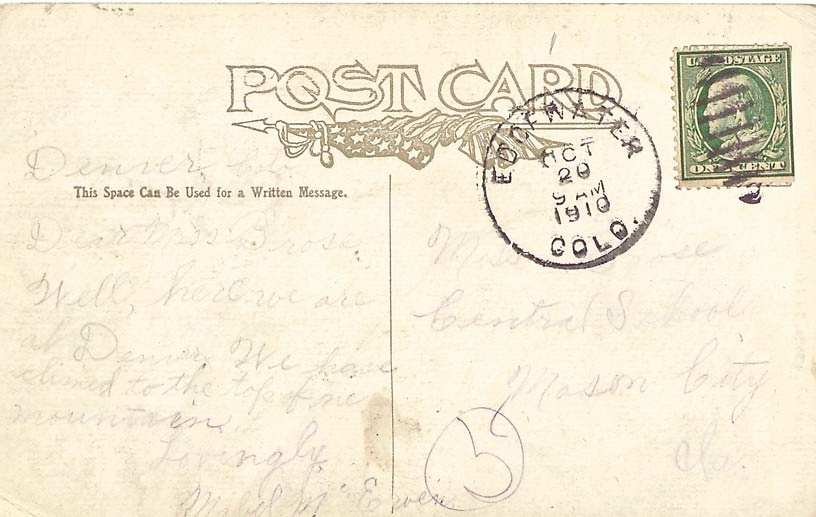 POST CARD
U.S. POSTAGE
ONE CENT
EDGEWATER
OCT
20
9 AM
1910
COLO.
Denver, Colo.
This Space Can Be Used for a Written Message.
Dear Miss Brose
Well, here we are
at Denver. We have
climed to the top of one
mountain.
Lovingly
Mabel McEwen
Miss Brose
Central School
Mason City
Ia.